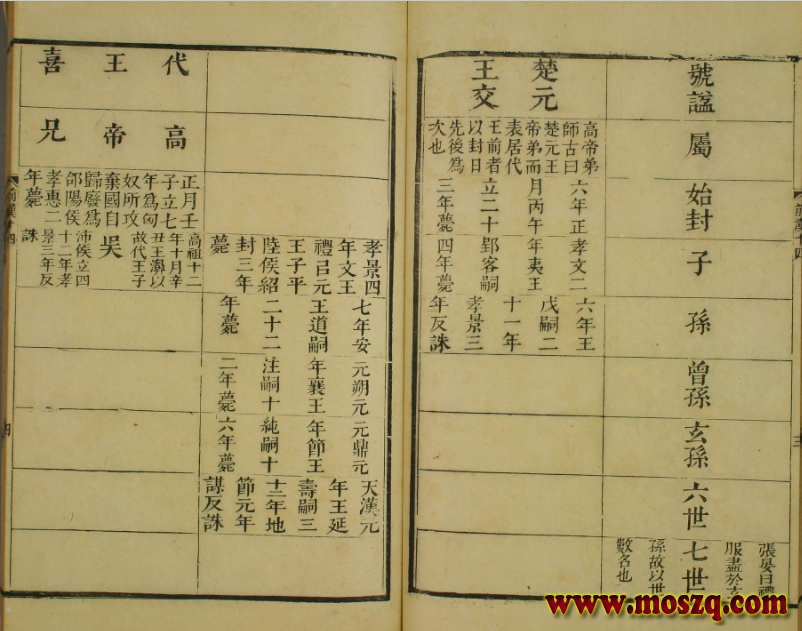 號謚
屬
始封
子
孫
曾孫
玄孫
六世
七世
張晏曰禮
服盡於玄
孫故以世
數名也
楚元
王交
高帝弟
師古曰
楚元王
帝弟而
表居代
王前者
以封日
先後爲
次也
六年正
月丙午
立二十
三年薨
孝文二
年夷王
郢客嗣
四年薨
六年王
戊嗣二
十一年
孝景三
年反誅
孝景四
年文王
禮㠯元
王子平
陸侯紹
封三年
薨
七年安
王道嗣
二十二
年薨
元朔元
年襄王
注嗣十
二年薨
元鼎元
年節王
純嗣十
六年薨
天漢元
年王延
壽嗣三
十二年地
節元年
謀反誅
代王喜
高帝兄
正月壬
子立七
年爲匈
奴所攻
棄國自
歸廢爲
郃陽侯
孝惠二
年薨
吳
高祖十二
年十月辛
丑王濞以
故代王子
沛侯立四
十二年孝
景三年反
誅
www.moszq.com